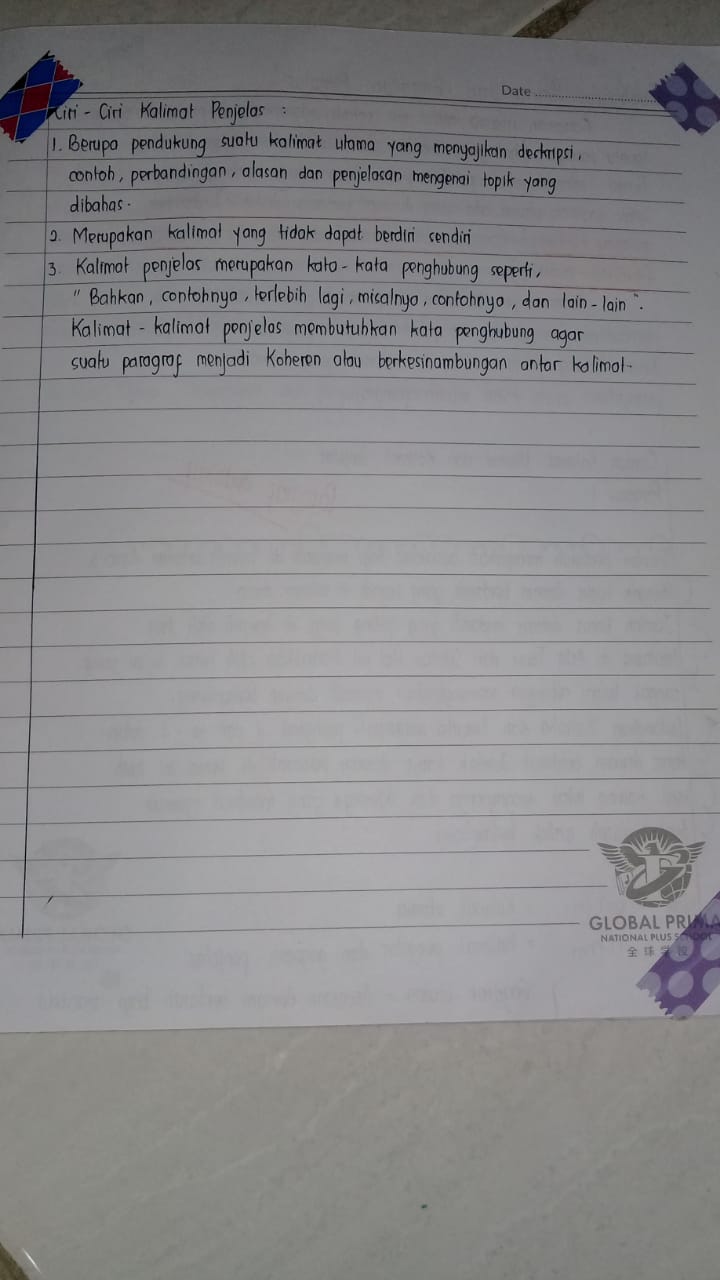 Date
Ciri - Ciri Kalimat Penjelas :
1. Berupa pendukung suatu kalimat utama yang menyajikan deckripsi,
contoh, perbandingan, alasan dan penjelasan mengenai topik yang
dibahas.
2. Merupakan kalimat yang tidak dapat berdiri sendiri
3. Kalimat penjelas merupakan kata - kata penghubung seperti,
" Bahkan, contohnya, terlebih lagi, misalnya, contohnya, dan lain - lain ".
Kalimat - kalimat penjelas membutuhkan kata penghubung agar
suatu paragraf menjadi Koheren atau berkesinambungan antar kalimat.
GLOBAL PRIMA
NATIONAL PLUS SCHOOL
全球学校